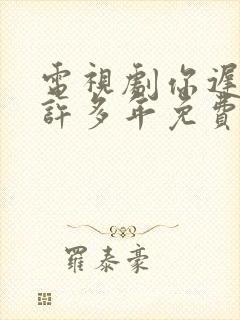 電視劇你遲
許多年免費
羅泰豪